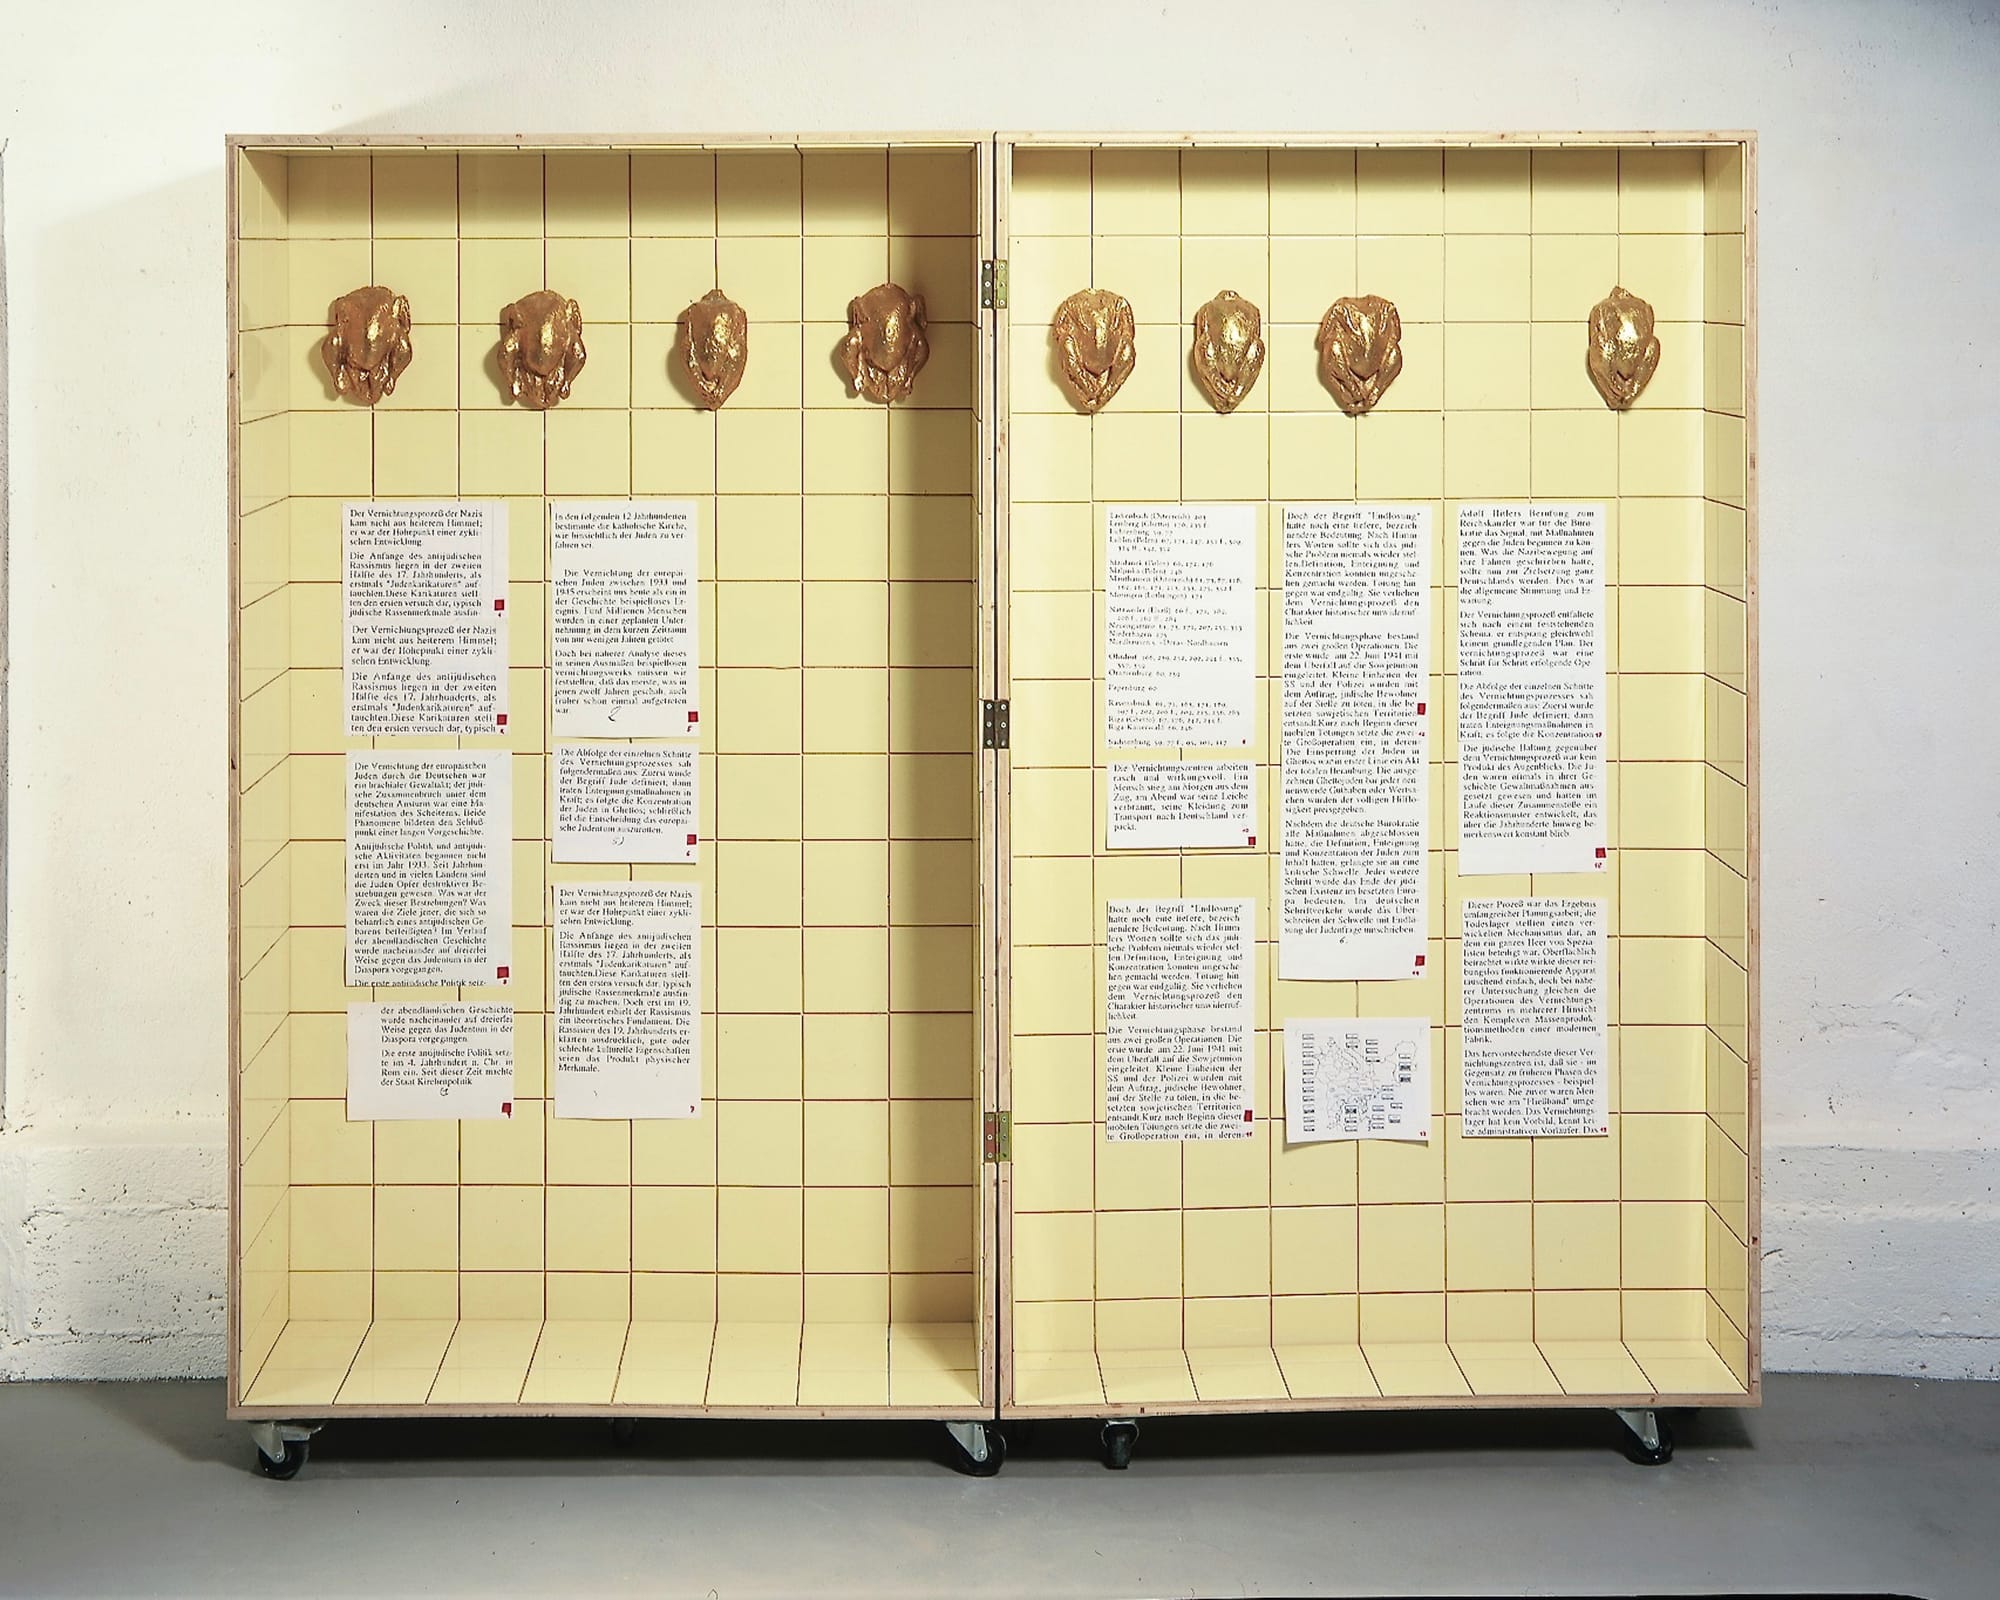 Der Vernichtungsprozeß der Nazis
kam nicht aus heiterem Himmel;
er war der Höhepunkt einer zykli-
schen Entwicklung.
Die Anfänge des antijüdischen
Rassismus liegen in der zweiten
Hälfte des 17. Jahrhunderts, als
erstmals "Judenkarikaturen" auf-
tauchten.Diese Karikaturen stell-
ten den ersten versuch dar, typisch
jüdische Rassenmerkmale ausfin-
Der Vernichtungsprozeß der Nazis
kam nicht aus heiterem Himmel;
er war der Höhepunkt einer zykli-
schen Entwicklung.
Die Anfänge des antijüdischen
Rassismus liegen in der zweiten
Hälfte des 17. Jahrhunderts, als
erstmals "Judenkarikaturen" auf-
tauchten.Diese Karikaturen stell-
ten den ersten versuch dar, typisch
Die Vernichtung der europäischen
Juden durch die Deutschen war
ein brachialer Gewaltakt; der jüdi-
sche Zusammenbruch unter dem
deutschen Ansturm war eine Ma-
nifestation des Scheiterns. Beide
Phänomene bildeten den Schluß-
punkt einer langen Vorgeschichte.
Antijüdische Politik und antijüdi-
sche Aktivitäten begannen nicht
erst im Jahr 1933. Seit Jahrhun-
derten und in vielen Ländern sind
die Juden Opfer destruktiver Be-
strebungen gewesen. Was war der
Zweck dieser Bestrebungen? Was
waren die Ziele jener, die sich so
beharrlich eines antijüdischen Ge-
barens befleißigten? Im Verlauf
der abendländischen Geschichte
wurde nacheinander auf dreierlei
Weise gegen das Judentum in der
Diaspora vorgegangen.
Die erste antijüdische Politik setz-
der abendländischen Geschichte
wurde nacheinander auf dreierlei
Weise gegen das Judentum in der
Diaspora vorgegangen.
Die erste antijüdische Politik setz-
te im 4. Jahrhundert n. Chr. in
Rom ein. Seit dieser Zeit machte
der Staat Kirchenpolitik
In den folgenden 12 Jahrhunderten
bestimmte die katholische Kirche,
wie hinsichtlich der Juden zu ver-
fahren sei.
Die Vernichtung der europäi-
schen Juden zwischen 1933 und
1945 erscheint uns heute als ein in
der Geschichte beispielloses Er-
eignis. Fünf Millionen Menschen
wurden in einer geplanten Unter-
nehmung in dem kurzen Zeitraum
von nur wenigen Jahren getötet
Doch bei näherer Analyse dieses
in seinen Ausmaßen beispiellosen
vernichtungswerks müssen wir
feststellen, daß das meiste, was in
jenen zwölf Jahren geschah, auch
früher schon einmal aufgetreten
war.
5
Die Abfolge der einzelnen Schritte
des Vernichtungsprozesses sah
folgendermaßen aus: Zuerst wurde
der Begriff Jude definiert; dann
traten Enteignungsmaßnahmen in
Kraft; es folgte die Konzentration
der Juden in Ghettos; schließlich
fiel die Entscheidung das europäi-
sche Judentum auszurotten.
5)
6
Der Vernichtungsprozeß der Nazis
kam nicht aus heiterem Himmel;
er war der Höhepunkt einer zykli-
schen Entwicklung.
Die Anfänge des antijüdischen
Rassismus liegen in der zweiten
Hälfte des 17. Jahrhunderts, als
erstmals "Judenkarikaturen" auf-
tauchten.Diese Karikaturen stell-
ten den ersten versuch dar, typisch
jüdische Rassenmerkmale ausfin-
dig zu machen. Doch erst im 19.
Jahrhundert erhielt der Rassismus
ein theoretisches Fundament. Die
Rassisten des 19. Jahrhunderts er-
klärten ausdrücklich, gute oder
schlechte kulturelle Eigenschaften
seien das Produkt physischer
Merkmale.
7
Lackenbach (Österreich)
Lemberg (Ghetto)
Lichtenburg
Lublin (Polen)
Majdanek (Polen)
Mauthausen (Österreich)
Natzweiler (Elsaß)
Neuengamme
Niederhagen
Ohrdruf
Oranienburg
Papenburg 60
Ravensbrück
Riga (Ghetto)
Riga-Kaiserwald
Sachsenburg
Die Vernichtungszentren arbeiten
rasch und wirkungsvoll. Ein
Mensch stieg am Morgen aus dem
Zug, am Abend war seine Leiche
verbrannt, seine Kleidung zum
Transport nach Deutschland ver-
packt.
10
Doch der Begriff "Endlösung"
hatte noch eine tiefere, bezeich-
nendere Bedeutung. Nach Himm-
lers Worten sollte sich das jüdi-
sche Problem niemals wieder stel-
len.Definition, Enteignung und
Konzentration konnten ungesche-
hen gemacht werden. Tötung hin-
gegen war endgültig. Sie verliehen
dem Vernichtungsprozeß den
Charakter historischer unwiderruf-
lichkeit.
Die Vernichtungsphase bestand
aus zwei großen Operationen. Die
erste wurde am 22. Juni 1941 mit
dem Überfall auf die Sowjetunion
eingeleitet. Kleine Einheiten der
SS und der Polizei wurden mit
dem Auftrag, jüdische Bewohner
auf der Stelle zu töten, in die be-
setzten sowjetischen Territorien
entsandt.Kurz nach Beginn dieser
mobilen Tötungen setzte die zwei-
te Großoperation ein, in deren
Doch der Begriff "Endlösung"
hatte noch eine tiefere, bezeich-
nendere Bedeutung. Nach Himm-
lers Worten sollte sich das jüdi-
sche Problem niemals wieder stel-
len.Definition, Enteignung und
Konzentration konnten ungesche-
hen gemacht werden. Tötung hin-
gegen war endgültig. Sie verliehen
dem Vernichtungsprozeß den
Charakter historischer unwiderruf-
lichkeit
Die Vernichtungsphase bestand
aus zwei großen Operationen. Die
erste wurde am 22. Juni 1941 mit
dem Überfall auf die Sowjetunion
eingeleitet. Kleine Einheiten der
SS und der Polizei wurden mit
dem Auftrag, jüdische Bewohner
auf der Stelle zu töten, in die be-
setzten sowjetischen Territorien
entsandt.Kurz nach Beginn dieser
mobilen Tötungen setzte die zwei-
te Großoperation ein, in deren
Die Einsperrung der Juden in
Ghettos war in erster Linie ein Akt
der totalen Beraubung. Die ausge-
zehnten Ghettojuden bar jeder nen-
nenswerte Guthaben oder Wertsa-
chen wurden der völligen Hilflo-
sigkeit preisgegeben.
Nachdem die deutsche Bürokratie
alle Maßnahmen abgeschlossen
hatte, die Definition, Enteignung
und Konzentration der Juden zum
Inhalt hatten, gelangte sie an eine
kritische Schwelle. Jeder weitere
Schritt würde das Ende der jüdi-
schen Existenz im besetzten Euro-
pa bedeuten. Im deutschen
Schriftverkehr wurde das Über-
schreiten der Schwelle mit Endlö-
sung der Judenfrage umschrieben.
6.
Adolf Hitlers Berufung zum
Reichskanzler war für die Büro-
kratie das Signal, mit Maßnahmen
gegen die Juden beginnen zu kön-
nen. Was die Nazibewegung auf
ihre Fahnen geschrieben hatte,
sollte nun zur Zielsetzung ganz
Deutschlands werden. Dies war
die allgemeine Stimmung und Er-
wartung.
Der Vernichtungsprozeß entfaltete
sich nach einem feststehenden
Schema. er entsprang gleichwohl
keinem grundlegenden Plan. Der
vernichtungsprozeß war eine
Schritt für Schritt erfolgende Ope-
ration.
Die Abfolge der einzelnen Schritte
des Vernichtungsprozesses sah
folgendermaßen aus: Zuerst wurde
der Begriff Jude definiert; dann
traten Enteignungsmaßnahmen in
Kraft; es folgte die Konzentration
Die jüdische Haltung gegenüber
dem Vernichtungsprozeß war kein
Produkt des Augenblicks. Die Ju-
den waren oftmals in ihrer Ge-
schichte Gewaltmaßnahmen aus-
gesetzt gewesen und hatten im
Laufe dieser Zusammenstöße ein
Reaktionsmuster entwickelt, das
über die Jahrhunderte hinweg be-
merkenswert konstant blieb.
Dieser Prozeß war das Ergebnis
umfangreicher Planungsarbeit; die
Todeslager stellten einen ver-
wickelten Mechanismus dar, an
dem ein ganzes Heer von Spezia-
listen beteiligt war. Oberflächlich
betrachtet wirkte wirkte dieser rei-
bungslos funktionierende Apparat
täuschend einfach, doch bei nähe-
rer Untersuchung gleichen die
Operationen des Vernichtungs-
zentrums in mehrerer Hinsicht
den Komplexen Massenproduk-
tionsmethoden einer modernen
Fabrik.
Das hervorstechendste dieser Ver-
nichtungszentren ist, daß sie - im
Gegensatz zu früheren Phasen des
Vernichtungsprozesses - beispiel-
los waren. Nie zuvor waren Men-
schen wie am "Fließband" umge-
bracht worden. Das Vernichtungs-
lager hat kein Vorbild, kennt kei-
ne administrativen Vorläufer. Das